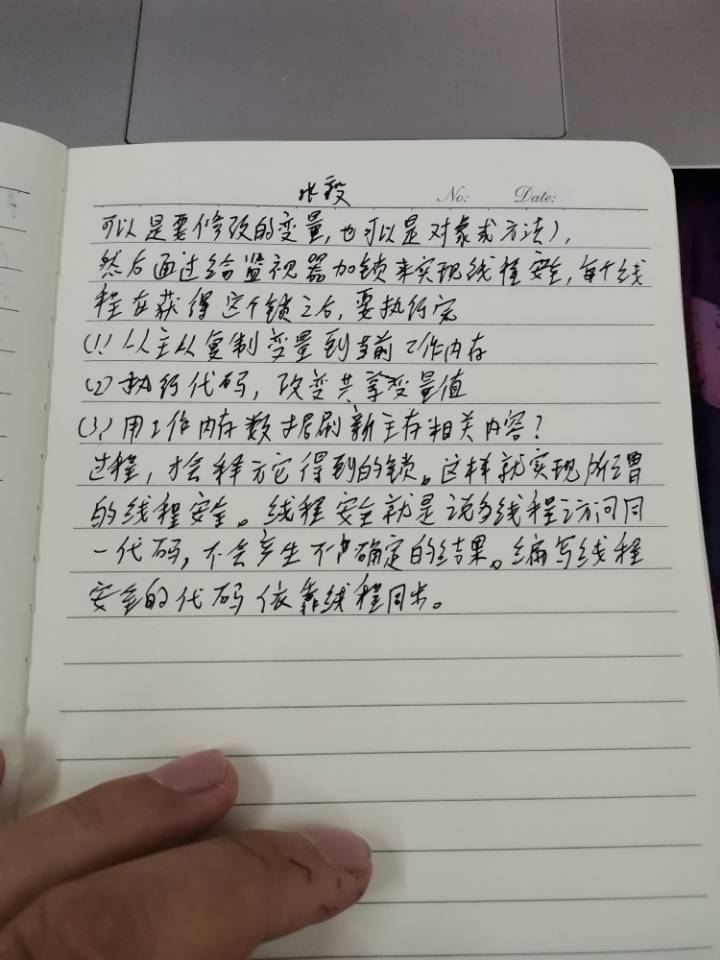 水毅
No: Date:
可以是要修改的变量,也可以是对象或方法),
然后通过给监视器加锁来实现线程安全,每个线
程在获得这个锁之后,要执行完
(1) 从主从复制变量到当前工作内存
(2) 执行代码,改变共享变量值
(3) 用工作内存数据刷新主存相关内容?
过程,才会释放它得到的锁。这样就实现所谓
的线程安全。线程安全就是说多线程访问同
一代码,不会产生不确定的结果。编写线程
安全的代码依靠线程同步。